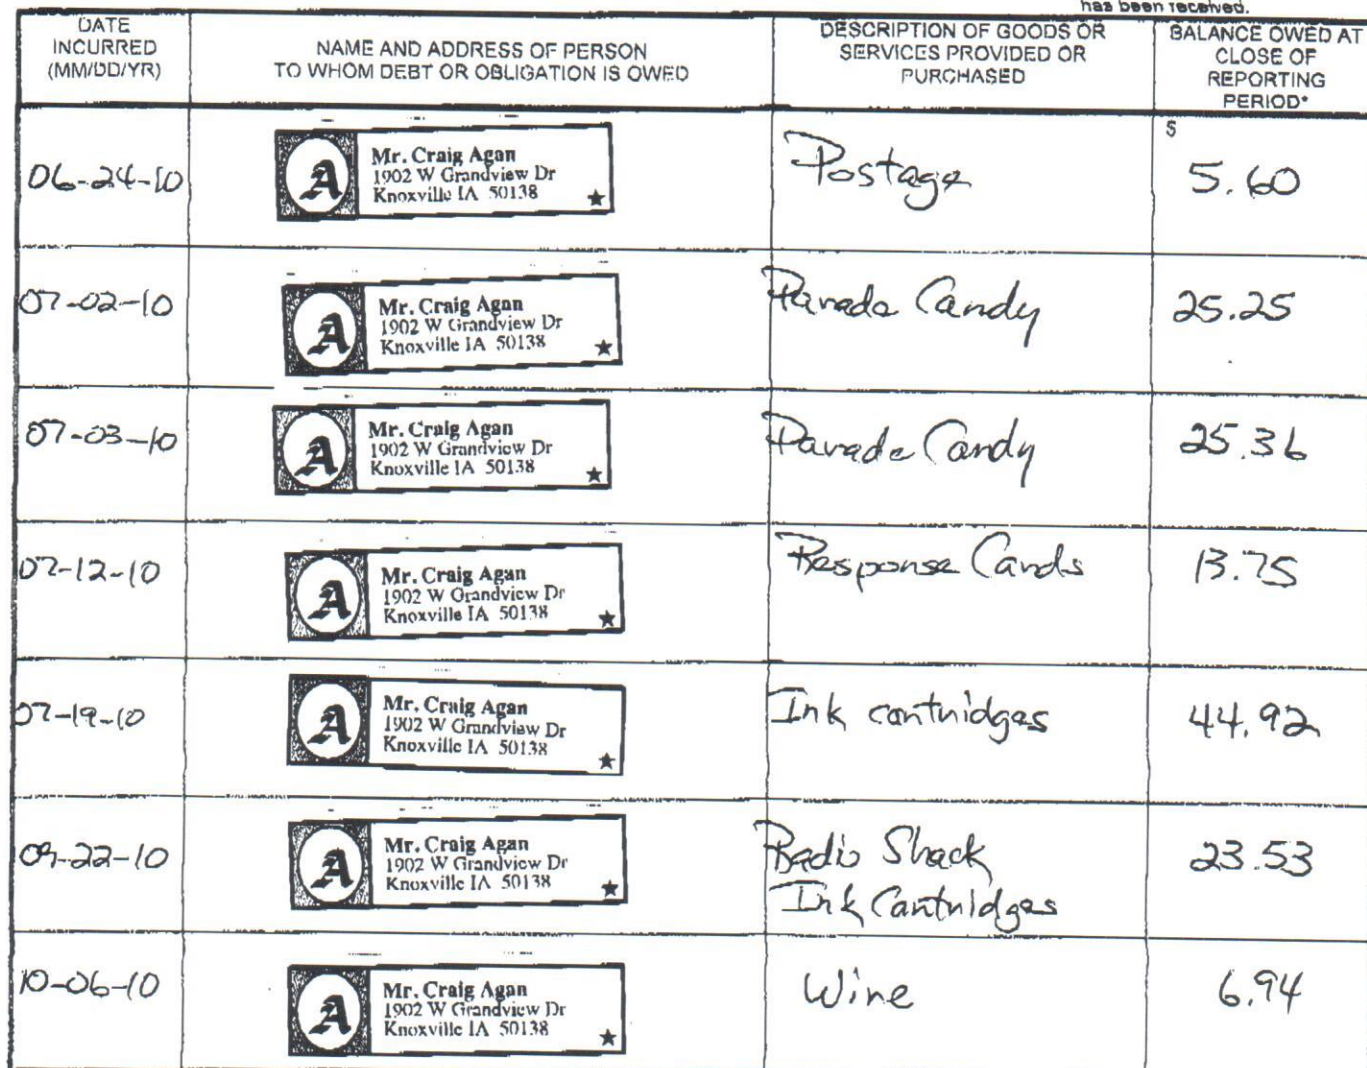 has been received.
DATE
INCURRED
(MM/DD/YR)
NAME AND ADDRESS OF PERSON
TO WHOM DEBT OR OBLIGATION IS OWED
DESCRIPTION OF GOODS OR
SERVICES PROVIDED OR
PURCHASED
BALANCE OWED AT
CLOSE OF
REPORTING
PERIOD*
06-24-10
A
Mr. Craig Agan
1902 W Grandview Dr
Knoxville IA 50138
Postage
$
5.60
07-02-10
A
Mr. Craig Agan
1902 W Grandview Dr
Knoxville IA 50138
Parade Candy
25.25
07-03-10
A
Mr. Craig Agan
1902 W Grandview Dr
Knoxville IA 50138
Parade Candy
25.36
07-12-10
A
Mr. Craig Agan
1902 W Grandview Dr
Knoxville IA 50138
Response Cards
13.75
07-19-10
A
Mr. Craig Agan
1902 W Grandview Dr
Knoxville IA 50138
Ink cartridges
44.92
09-22-10
A
Mr. Craig Agan
1902 W Grandview Dr
Knoxville IA 50138
Radio Shack
Ink Cartridges
23.53
10-06-10
A
Mr. Craig Agan
1902 W Grandview Dr
Knoxville IA 50138
Wine
6.94